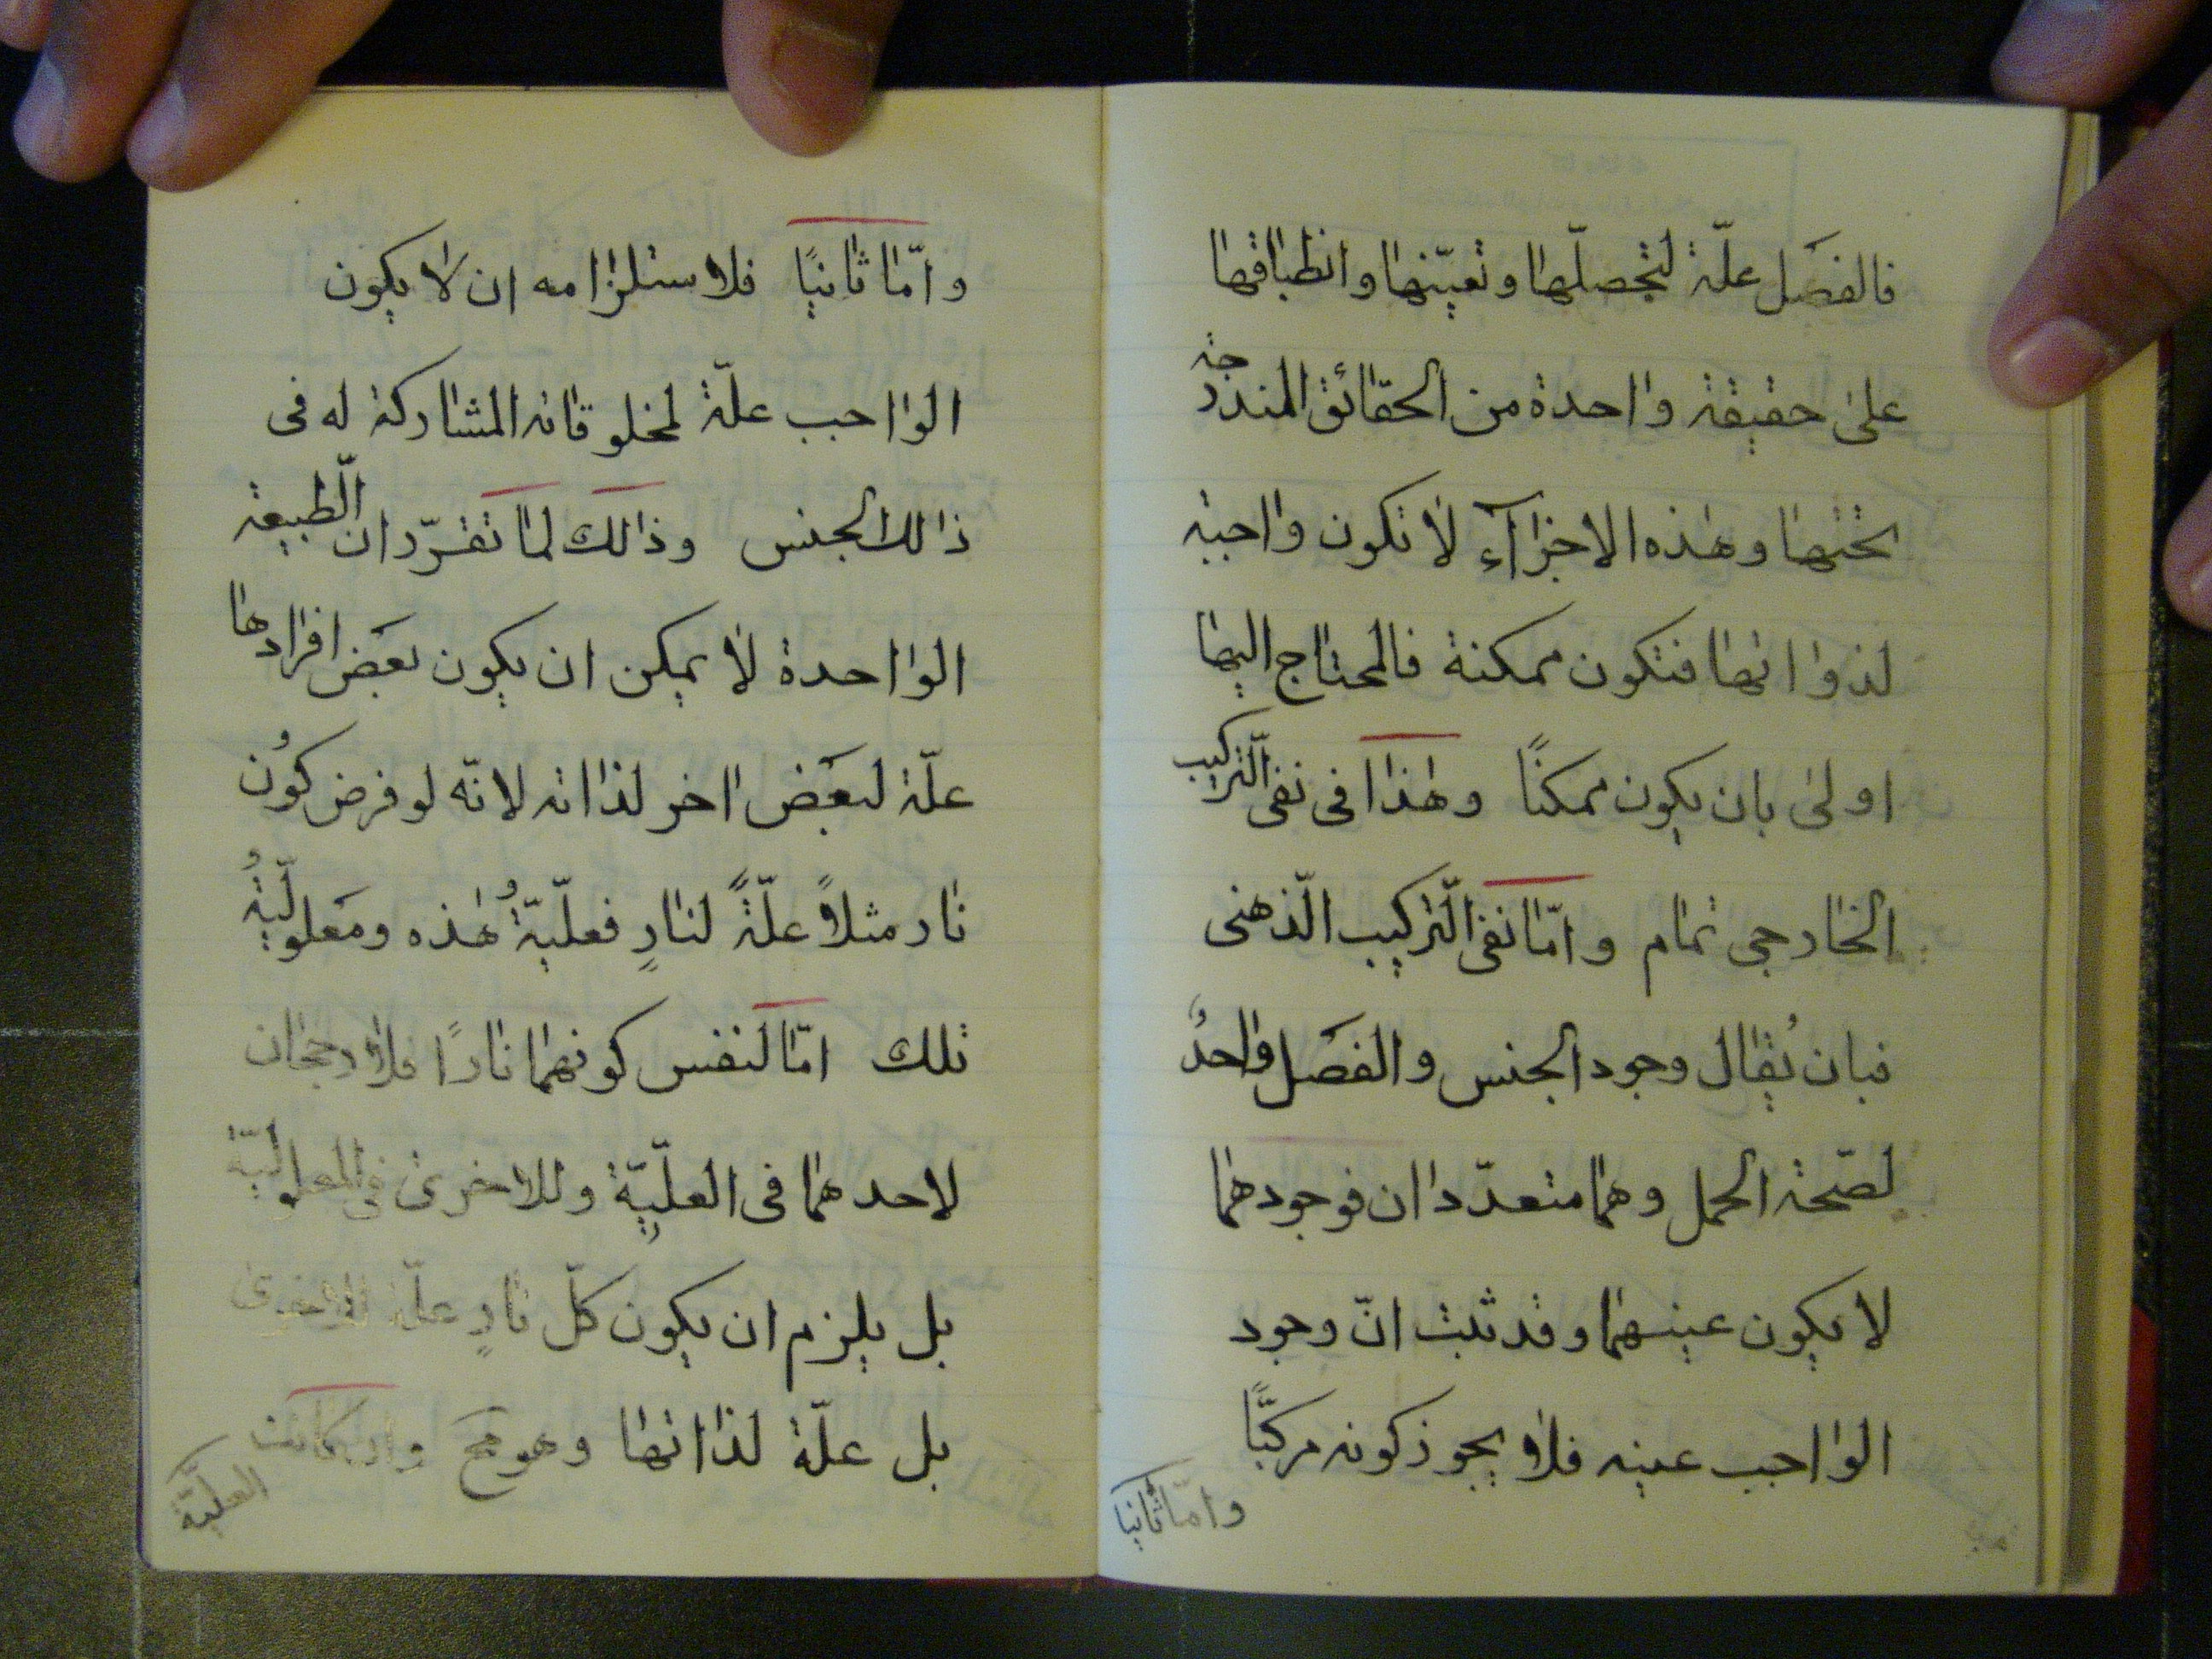 فالفصل علّة لتحصلّها وتعيّنها وانطباقها
علىٰ حقيقة واحدة من الحقائق المندرجة
تحتها وهٰذه الاجزآء لا تكون واجبة
لذواتها فتكون ممكنة فالمحتاج اليها
اولىٰ بان يكون ممكنًا وهٰذا فى نفى التّركيب
الخارجى تمام وامّا نفى التّركيب الذّهنى
فبان يُقال وجود الجنس والفصل واحدٌ
لصّحة الحمل وهما متعدّدان فوجودهما
لا يكون عينهما وقد ثبت انّ وجود
الواجب عينه فلا يجوز كونه مركبًّا
وامّا ثانيا
وامّا ثانيًا فلاستلزامه ان لا يكون
الواجب علّة لمخلوقاته المشاركة له فى
ذالك الجنس وذالك لما تقرّر ان الطّبيعة
الواحدة لا يمكن ان يكون بعض افرادها
علّة لبعض اخر لذاته لانّه لو فرض كون
نار مثلاً علّةً لنارٍ فعليّةُ هٰذه ومعلوليّةُ
تلك امّا لنفس كونهما نارًا فلا رجحان
لاحدهما فى العليّة وللاخرىٰ فى المعلوليّة
بل يلزم ان يكون كلّ نارٍ علّة للاخرىٰ
بل علّة لذاتها وهو مح وان كانت
العليّة